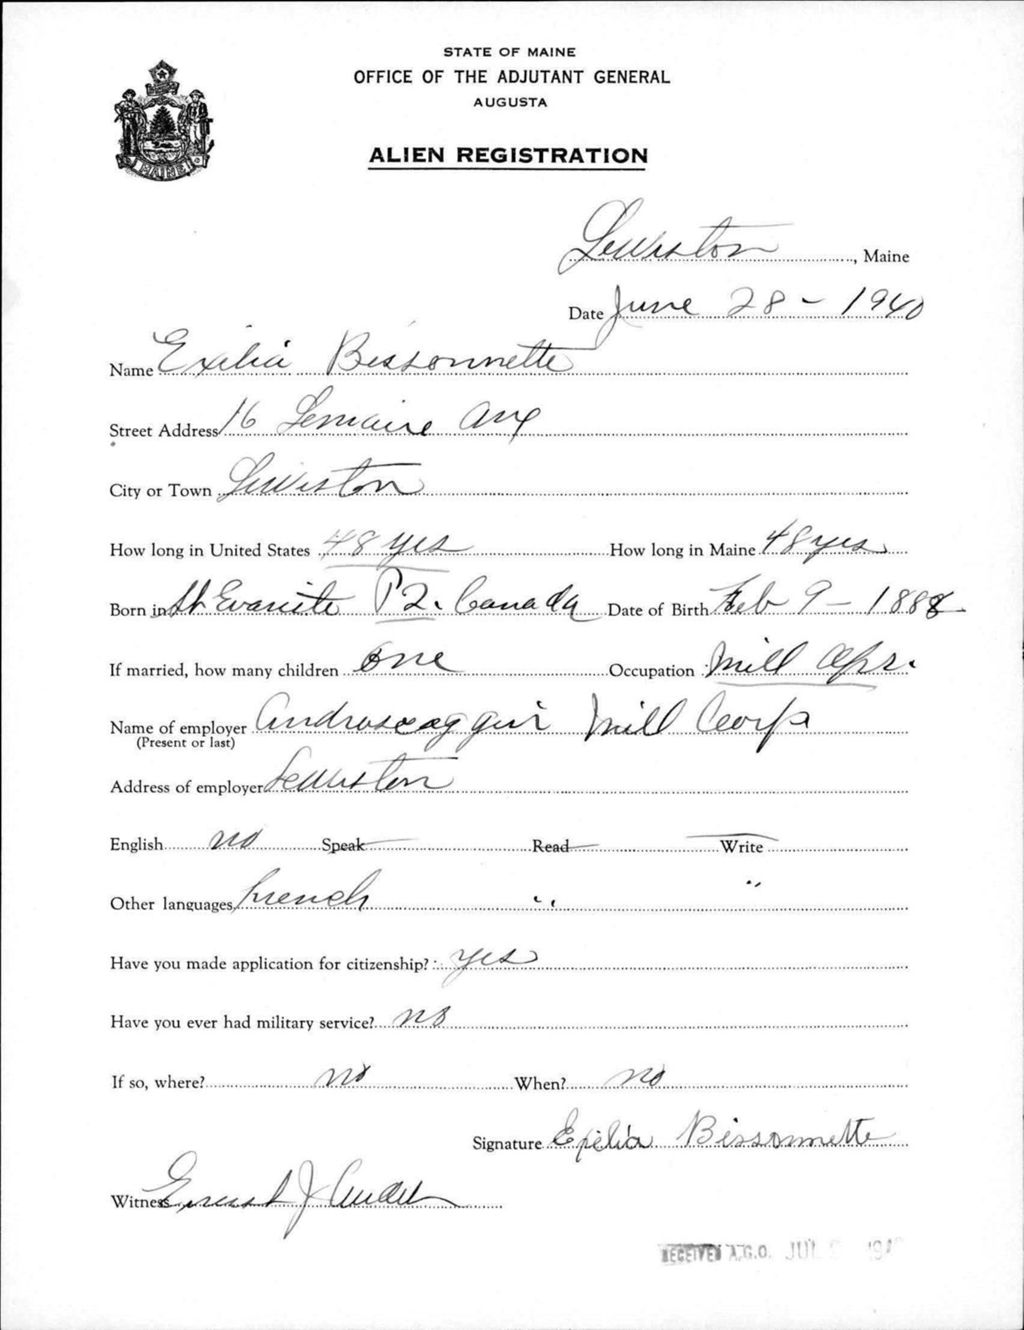 STATE OF MAINE
OFFICE OF THE ADJUTANT GENERAL
AUGUSTA
ALIEN REGISTRATION
MAINE
Lewiston, Maine
Date June 28 - 1940
Name Exilia Bissonnette
Street Address 16 Lemaire Ave
City or Town Lewiston
How long in United States 48 yes How long in Maine 48 yes
Born in St Evariste P2. Canada Date of Birth Feb 9 - 1888
If married, how many children one Occupation Mill Opr.
Name of employer Androscoggin Mill Corp
(Present or last)
Address of employer Lewiston
English no Speak Read Write
Other languages french " "
Have you made application for citizenship? yes
Have you ever had military service? no
If so, where? no When? no
Signature Exilia Bissonnette
Witness Ernest J
RECEIVED A.G.O. JUL